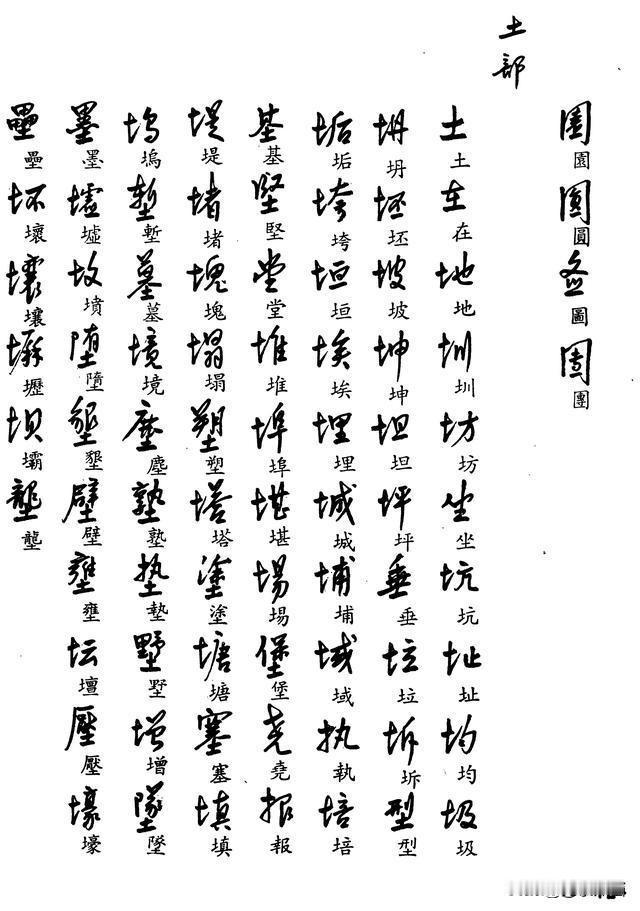 園園 圓圓 圖圖 團團
土部
土土 在在 地地 圳圳 坊坊 坐坐 坑坑 址址 均均 圾圾
坍坍 坯坯 坡坡 坤坤 坦坦 坪坪 垂垂 垃垃 坼坼 型型
垢垢 垮垮 垣垣 埃埃 埋埋 城城 埔埔 域域 执執 培培
基基 堅堅 堂堂 堆堆 埠埠 堪堪 場場 堡堡 堯堯 报報
堤堤 堵堵 塊塊 塌塌 塑塑 塔塔 塗塗 塘塘 塞塞 填填
塢塢 塹塹 墓墓 境境 塵塵 塾塾 垫墊 墅墅 增增 墜墜
墨墨 墟墟 坟墳 堕墮 墾墾 壁壁 壅壅 坛壇 壓壓 壕壕
壘壘 坏壞 壤壤 壢壢 坝壩 壟壟